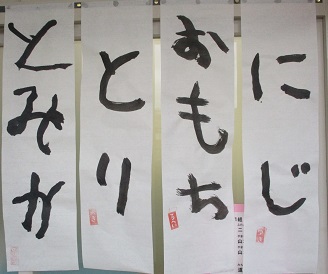 にじ
おもち
とり
とみか